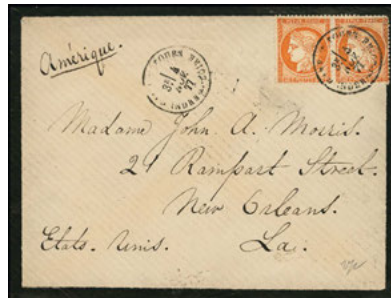 Amérique.
TOURS
4
77
Madame John A. Morris.
21 Rampart Street.
New Orleans.
Etats-Unis. Lai.